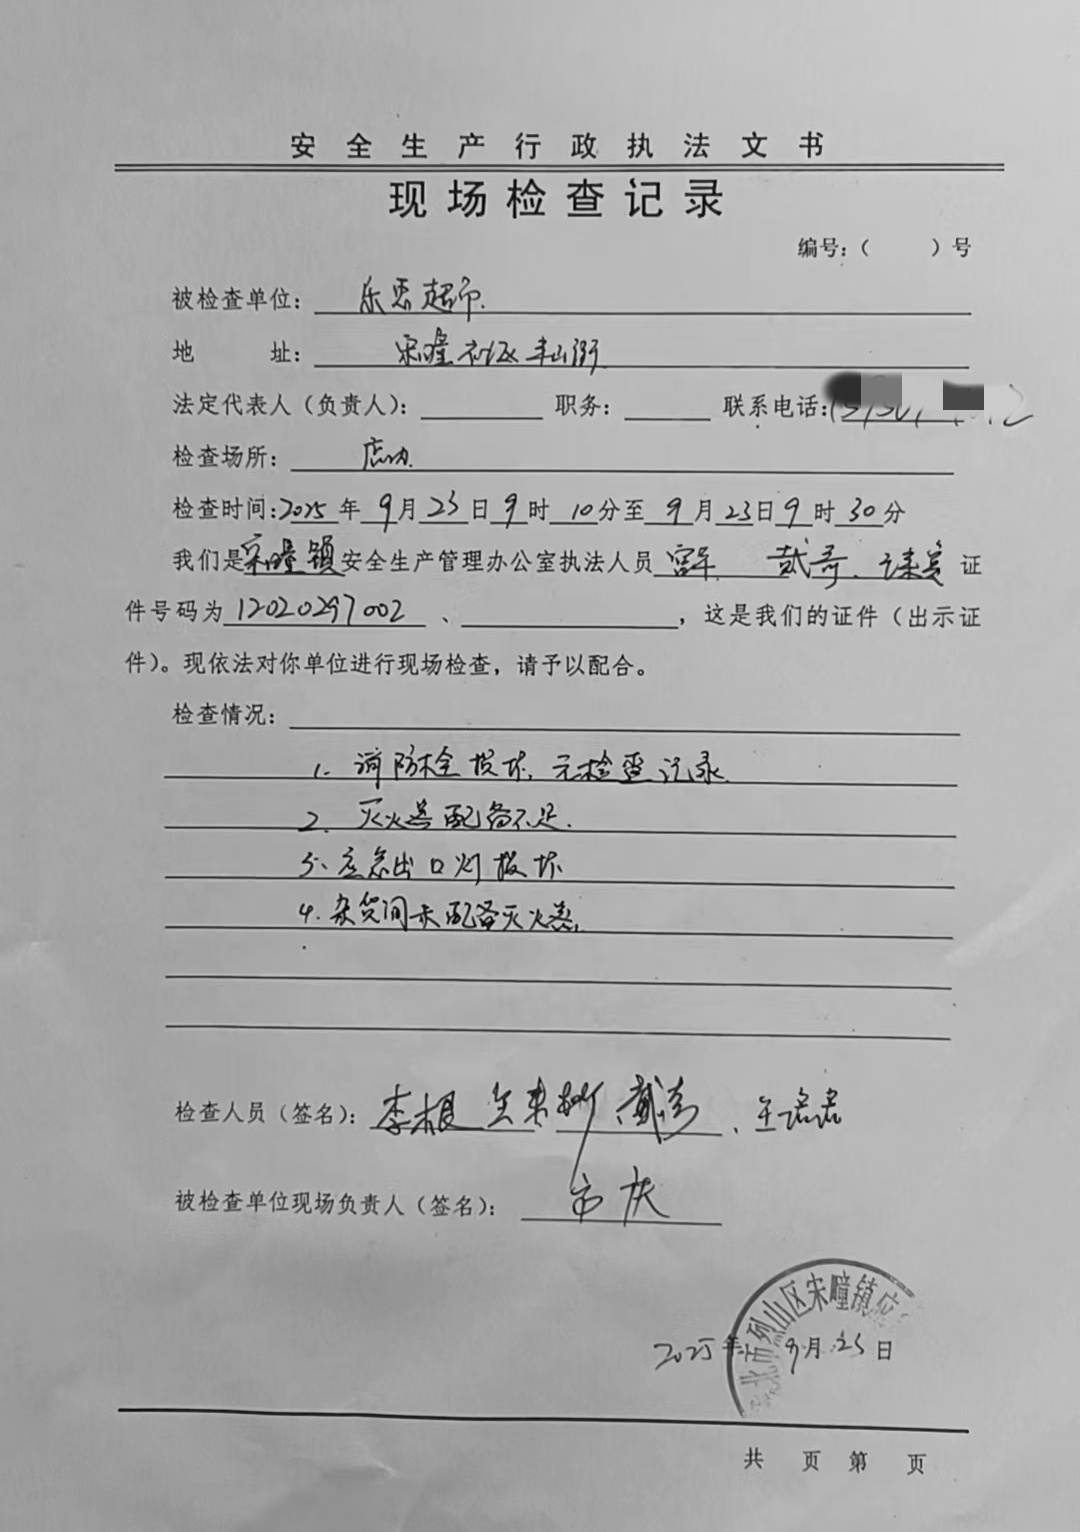 安全生产行政执法文书
现场检查记录
编号:（ ）号
被检查单位: 乐 超市
地 址: 宋疃社区 街
法定代表人（负责人）: 职务: 联系电话:
检查场所: 店内
检查时间:2025年9月23日9时10分至9月23日9时30分
我们是宋疃镇安全生产管理办公室执法人员 证
件号码为12020297002、 ，这是我们的证件（出示证
件）。现依法对你单位进行现场检查，请予以配合。
检查情况:
1. 消防栓损坏，无检查记录.
2. 灭火器配备不足.
3、应急出口灯损坏
4. 杂货间未配备灭火器.
检查人员（签名）: 李根
被检查单位现场负责人（签名）:
北市烈山区宋疃镇应
2025年9月23日
共 页 第 页